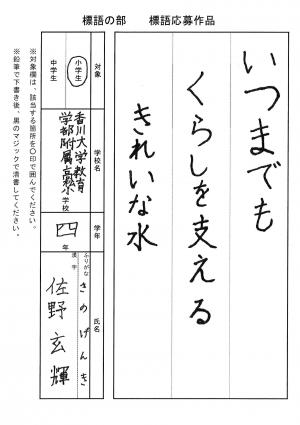 標語の部　　標語応募作品
いつまでも
くらしを支える
きれいな水
対象
小学生
中学生
学校名
香川大学教育
学部附属高松小学校
学年
四年
氏名
ふりがな
さのげんき
漢字
佐野玄輝
※対象欄は、該当する箇所を〇印で囲んでください。
※鉛筆で下書き後、黒のマジックで清書してください。